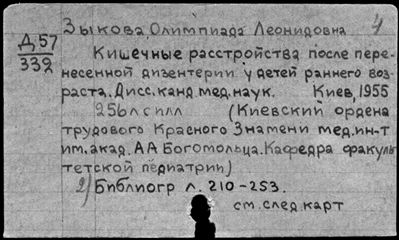 Зыкова, Олимпиада Леонидовна 4
Д57
332
Кишечные расстройства после пере-
несенной дизентерии у детей раннего воз-
раста. Дисс. канд. мед. наук. Киев, 1955
256л с илл (Киевский ордена
трудового Красного Знамени мед. ин-т
им. акад. А А Богомольца. Кафедра факуль
тетской педиатрии)
2) Библиогр л. 210-253.
см. след карт